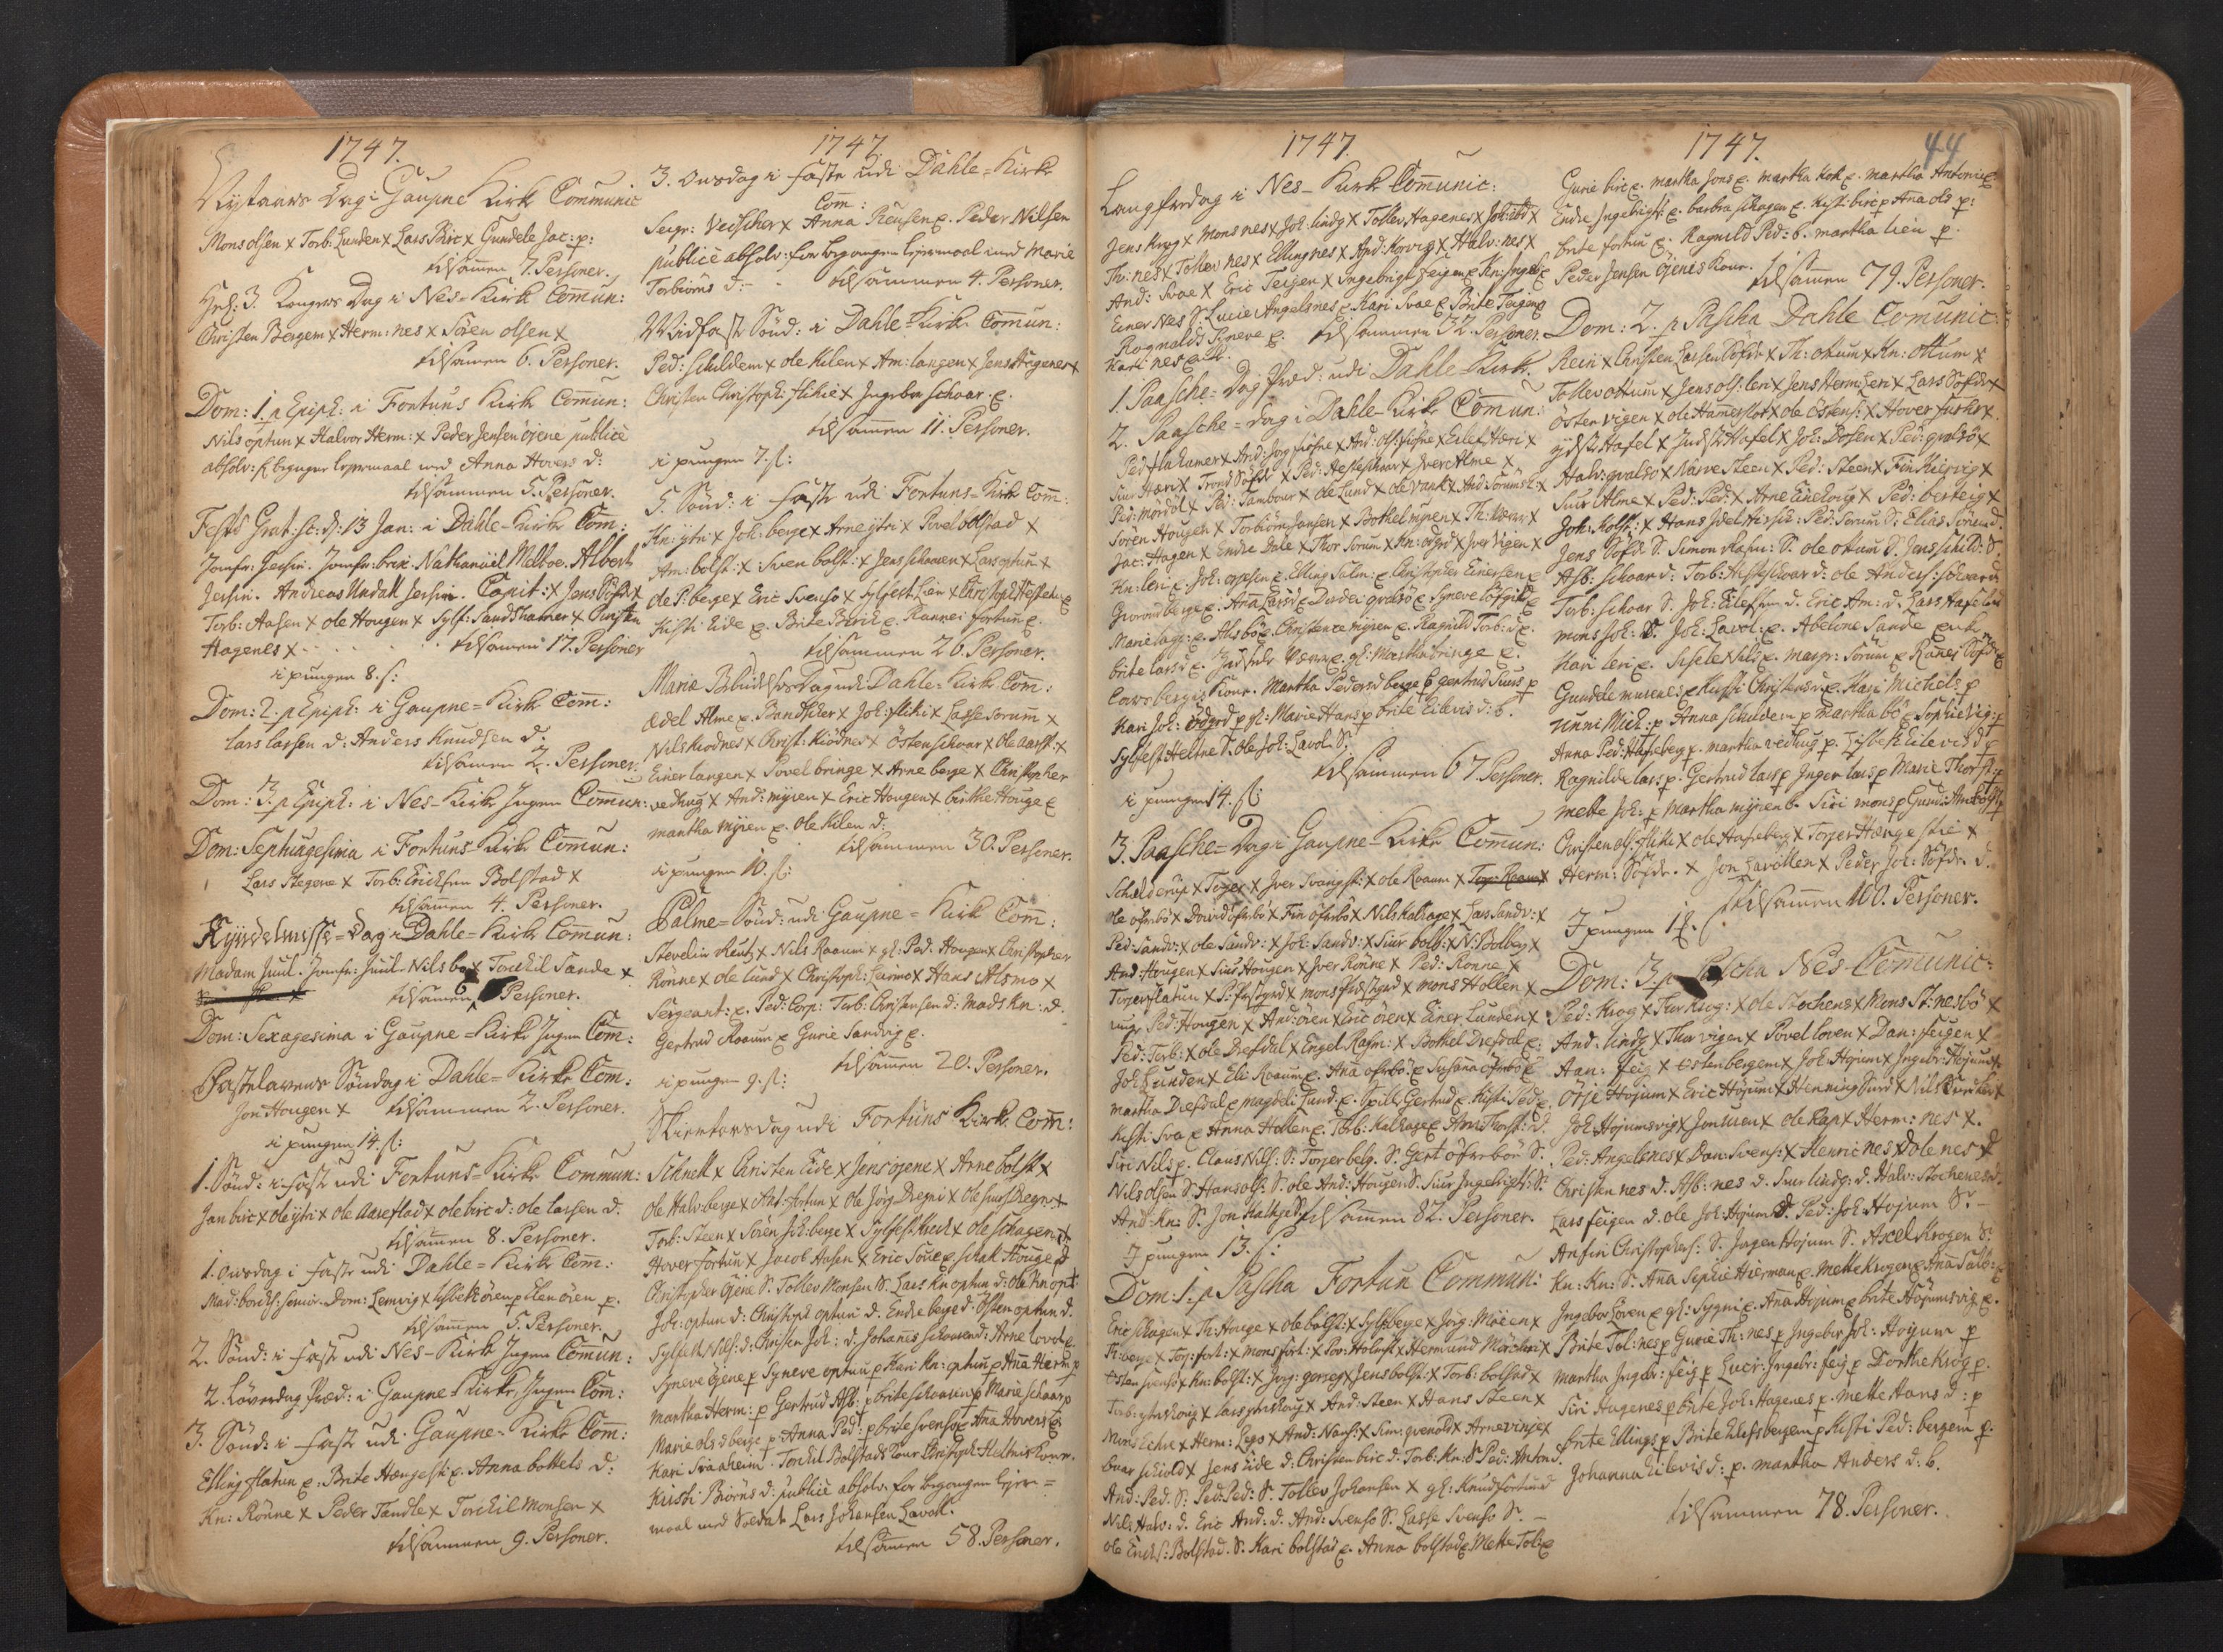 1747.
Nytaars Dag i Gaupne Kirk Communic
Mons olsen x Torb: Lunden x Lars Birc x Gundele Jac: p:
tilsamen 7. Personer.
Hel: 3. Kongers Dag i Nes-Kirk Comun:
Christen Bergem x Herm: nes x Sören olsen x
tilsamen 6. Personer.
Dom: 1. p Epiph: i Fortuns Kirk Comun:
Nils optun x Halvor Herm: x Peder Jensen öjene publicè
absolv: f. begangen lejermaal med Anna Hovers d:
tilsammen 5. Personer.
Festo Grat: d: 13 Jan: i Dahle-Kirk Com:
Jomfr: Jersin. Jomfr: brix. Nathanaël Melboe. Albert
Jersin. Andreas Undall Jersin. Capit: x Jens Söfde x
Torb: Aasen x ole Hougen x Sylf: Sandshamer x Christen
Hagenes x tilsamen 17. Personer
i pungen 8. s:
Dom: 2. p Epiph: i Gaupne-Kirk Com:
Lars larsen d: Anders Knudsen d.
tilsamen 2. Personer.
Dom: 3. p Epiph: i Nes-Kirk Ingen Comun:
Dom: Septuagesima i Fortuns Kirk Comun:
Lars Stegene x Torb: Ericksen Bolstad x
tilsamen 4. Personer.
Kyndelmisse-Dag i Dahle-Kirk Comun:
Madam Juul. Jomfr: Juul. Nils bo x Torckil Sande x
tilsamen 6 Personer.
Dom: Sexagesima i Gaupne-Kirk Ingen Com:
Fastelavens Söndag i Dahle-Kirk Com:
Jon Hougen x tilsammen 2. Personer.
i pungen 14. s:
1. Sönd: i faste udi Fortuns-Kirk Commun:
Jan birc x ole ytri x ole Aareflad x ole birc d: ole larsen d.
tilsamen 8. Personer.
1. onsdag i faste udi Dahle-Kirk Com:
Mad: borchs: senior. Dom: Lemvig x lisbet ören p Elen ören p.
tilsamen 5. Personer.
2. Sönd: i faste udi Nes-Kirk Ingen Comun:
2. Löverdag Præd: i Gaupne Kirk, Ingen Com:
3. Sönd: i faste udi Gaupne-Kirk Com:
Elling flatun e. Brite Hengesti e. Anna bottels d:
Kn: Rönne x Peder Tandle x Torckil Monsen x
tilsammen 9. Personer.
1747.
3. onsdag i faste udi Dahle-Kirk
Com:
Seigr: Veischer x Anna Reusen e. Peder Nilsen
publicè absolv: for begangen lejermaal med Marie
Torbiörns d: tilsammen 4. Personer.
Midfaste Sönd: i Dahle-Kirk Comun:
Ped: schildem x ole Kilen x Am: langen x Jens Hagenes x
Christen Christoph: flikie x Ingebor schoar. e.
tilsammen 11. Personer.
i pungen 7. s:
5. Sönd: i faste udi Fortuns-Kirk Com:
Kn: ytri x Joh: berge x Arne ytri x Povel bolstad x
Am: bolst: x Sven bolst: x Jens schaaren x Lars optun x
ole P: berge x Eric Svensø x Sylfest Lien x
Kisti Eide e. Brite Birc e. Rannei fortun e.
tilsammen 26. Personer.
Mariæ Bebudelses Dag udi Dahle-Kirk Com:
Ædel Alme e. Bandscher x Joh: fliki x Lasse Sorum x
Nils Kiodnes x Christ: Kiödnes x östen schoar x ole aarst: x
Einer langen x Povel bringe x Arne berge x Christopher
vedhug x And: myren x Eric Hougen x birthe Houge e
martha myren e. ole Kilen d:
tilsammen 30. Personer.
i pungen 10. s:
Palme-Sönd: udi Gaupne-Kirk Com:
Stevelin Reutz x Nils Roaum x gl: Ped: Hougen x Christopher
Rönne x ole lund x Christoph: Leirmo x Hans Alsmo x
Sergeant: e. Ped: Corp: Torb: Christensen d: Mads Kn: d.
Gertrud Roaum e Gurie Sandvig e.
tilsamen 20. Personer.
i pungen 9. s:
Skiertorsdag udi Fortuns Kirk. Com:
Schnell x Christen Eide x Jens öjene x Arne bolst x
ole Halv: berge x Ant: fortun x ole Jörg: Dregni x ole siurs Dregni x
Torb: Steen x Sören Joh: berge x Sylfest Kroch x ole schagen x
Hover fortun x Jacob Aasen x Eric
Christopher öjene S. Tollev Monsen S. Lars Kn optun d: ole Kn opt:
Joh: optun d: Christoph optun d. Endre berge d. Östen optun d.
Sylfest Nils: d: Christen Joh: d. Johanes schaaren d: Arne
Syneve öjene p Syneve optun p Kari Kn: optun p Ana Hierm p
martha Herm: p Gertrud Asb: p brite schaaren p Marie schaar p
Marie ols d berge p. Anna Ped: p brite svensø e Ana Hovers e
Kari Svaaheim. Torckil Bolstads Kone. Christoph: Heltnes Kone.
Kirsti Biörns d: publicè absolv: for begangen lejer-
maal med Soldat Lars Johansen Lavoll.
tilsamen 58. Personer.
1747.
Langfredag i Nes-Kirk Comunic:
Jens Krog x Mons nes x Joh: lindg x Tollev Hagenes x Joh: ibid x
Th: nes x Tollev nes x Elling nes x And: Korvig x Halv: nes x
And: Svae x Eric Teigen x Ingebrigt feigen e
Einer Nes S. Lucie Angelsnes e Kari Svae e Brite Teigen e
Rognalds Syneve e. tilsammen 32. Personer.
Kari nes e
1. Paasche-Dag Præd: udi Dahle-Kirk.
2. Paasche-Dag i Dahle-Kirk Comun:
Ped flahamer x And: Jörg fiösne x And: ols: fiösne x Erle Hæri x
Siur Hæri x Trond Söfde x Ped: Hesteschoar x Iver Alme x
Ped: mordöl x Ped: Tambour x ole Lund x ole vank x And: Sorumst: x
Sören Hougen x Torbiörn Jansen x Bottel myren x Th: Kværn x
Jac: Hagen x Endre Dale x Thor Sorum x Kn: ödgrd x Iver Vigen x
Kn: leri e. Joh: e. Elling Salm: e Christopher Einersen e
Gurond berge e. Ana Lars: e Dordei qvalsö e Syneve Söfde e
Marie lag: e. Alis bö e. Christence myren e. Ragnild Torb: d e.
brite lars d e. Kværn e. gl: Martha bringe e.
Lars berges Kone. Martha Peders d berge p gertrud Siurs p
Kari Joh: ödgrd p gl: Marie Hans p brite Eilevs d: b.
Sylfest Heltne S. ole Joh: Lavol. S.
tilsammen 67. Personer.
i pungen 14. s:
3. Paasche-Dag i Gaupne-Kirk Comun:
Schelderup x Torjer x Iver Svangst: x ole Roaum x
ole öfrebö x David öfrebö x Fin öfrebö x Nils Kalhage x Lars Sandv: x
Ped: Sandv: x ole Sandv: x Joh: Sandv: x Siur bolb: x N: Bolbey x
And: Hougen x Siur Hougen x Iver Rönne x Ped: Rönne x
Torjer flatun x P: x mons x mons Hollen x
Ped: Hougen x And: ören x Eric ören x Einer Lunden x
Ped: Torb: x ole Drefdal x Engel Rasm: x Bottel Drefdal e.
Joh: Lunden x Eli Roaum e. Ana öfrebö e Susana öfrebö e
martha Drefdal e magdeli Lund. e. Spille Gertrud e. Kisti Ped. e
Kisti Sva e Anna Hollen e. Torb: Kalhage e Arne Thorst: d.
Siri Nils p. Claus Nils: S: Torjer belg. S. Gert öfrebön S.
Nils olsen S. Hans ols: S. ole And: Hougen S. Siur Ingebrigt: S.
And: Kn: S. Jon Kalhge S. tilsamen 82. Personer.
I pungen 13. s:
Dom: 1: p Pascha Fortun Commun:
Eric schagen x Th: Houge x ole bolst: x Syls berge x Jörg: Möien x
Th: berge x Torj: fort: x mons fort: x Pov: Holust x Hermund Mörchri x
östen svensø x Kn: bolst: x Jörg: x Jens bolst: x Torb: bolstad x
Torb: ytreskong x lars ytreskong x And: Steen x Hans Steen x
Mons Eche x Herm: x And: Nons: x Sim: qvenold x Arne vinje x
Evar schiold x Jens Eide d: Christen birc d: Torb: Kn: d Ped: Anton d.
And: Ped. S: Ped: Ped: S. Tollev Johansen x gl: Knud fortun d
Nils Halv: d. Eric And: d. And: Svensö S. Lasse Svensø S.
ole Endr: Bolstad. S. Kari bolstad e. Anna bolstad e Mette Tol: e
1747. 44
Gurie birc e. martha Jons e. martha Kok e. martha Antoni e
Endre Ingebrigt: e. barbra schagen e. Kisti birc p Ana ols p:
brite fortun e. Ragnild Ped: b. martha lien p.
Peder Jensen Öjenes Kone. tilsamen 79. Personer.
Dom: 2. p Pascha Dahle Comunic:
Rein x Christen Larsen Söfde x Th: ottum x Kn: ottum x
Tollev ottum x Jens ols: leri x Jens Herm: leri x Lars Söfde x
östen vigen x ole Hamerslet x ole östens: x Hover x
x x Joh: Bosen x Ped: qvalsö x
Halv: qvalsø x Narve Steen x Ped: Steen x Fin Kiervig x
Siur Alme x Ped: Ped: x Arne Einehoug x Ped: berteig x
Joh: Kolst: x Hans Ped: Sorum S: Elias Sörum d:
Jens Söfde S. Simon Rasm: S. ole ottum S. Jens schild: S.
Asb: schoar d: Torb: Hesteschoar d: ole Anders: schoar d.
Torb: schoar S. Joh: Eilefsen d. Eric Am: d. Lars Hafslad
mons Joh: S. Joh: Lavol: e. Abelone Sande enke
Kari leri e. Sisele Nils e. margr: Sorum e Ranei Söfde e
Gundele muren: e Kisti Christens d: e. Kari Michels p
Unni Mich: p Anna schildem p martha bö e Sophie vig: p
Anna Ped: Hafseberg p. martha vedhug p. Lisbeth Eilevs d p
Ragnilde lars: p. Gertrud lars p Inger lars p Marie Thorst: p
Mette Joh: p Martha myren b. Siri mons p Gund: Am: bolst p
Christen ols: fliki x ole Hafseberg x Torjer Hængestie x
Herm: Söfde. x Jon Lavollen x Peder Joh: Söfde. d.
Tilsamen 100. Personer.
I pungen 18.
Dom: 3. p Pascha Nes-Comunic:
Ped: Krog x Thor Krog: x ole Stochenes x Mons St: nesbö x
And: lindg x Thor vigen x Povel loven x Dan: feigen x
Han: feig x östen bergem x Joh: Hojum x Ingebr: Hojum x
Örje Höjum x Eric Höjum x Henning Smid x Nils x
Joh: Hojumsvig x Jon x ole Rap x Herm: nes x.
Ped: Angelsnes x Dan: Svens: x Henric nes x ole nes d
Christen nes d. Asb: nes d. Siur lindg: d. Halv: Stochenes d.
Lars feigen d. ole Joh: Hojum d. Ped: Joh: Hojum S.
Anfin Christophers: S. Jagen Hojum S. Axel Krogen S:
Kn: Kn: S. Ana Sophie Hierman e. Mette Krogen e Ana Salö: e
Ingebor Loven e gl: Sygni e. Ana Hojum e brite Höjumsvig e.
Brite Tol: nes p Gurie Th: nes p Ingebor Joh: Hojum p
martha Ingebr: feig p Lucie: Ingebr: feig p Dorthe Krog p.
Siri Hagenes p brite Joh: Hagenes p. mette Hans d: p
brite Ellings p Brite Elefs bergem p Kisti Ped: bergem p.
Johanna Eilevs d: p. martha Anders d: b.
tilsammen 78. Personer.